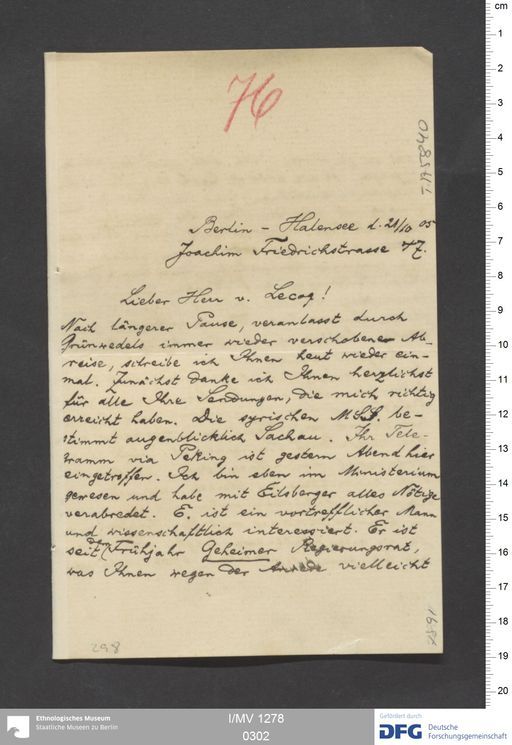 76
TA5840
Berlin – Halensee d. 21/10 05
Joachim Friedrichstrasse 47.
Lieber Herr v. Lecoq!
Nach längerer Pause, veranlasst durch
Grünwedels immer wieder verschobener Ab-
reise, schreibe ich Ihnen heut wieder ein-
mal. Zunächst danke ich Ihnen herzlichst
für alle Ihre Sendungen, die mich richtig
erreicht haben. Die syrischen MSS. be-
stimmt augenblicklich Sachau. Ihr Tele-
gramm via Peking ist gestern Abend hier
eingetroffen. Ich bin eben im Ministerium
gewesen und habe mit Eilsberger alles Nötige
verabredet. E. ist ein vortrefflicher Mann
und wissenschaftlich interessiert. Er ist
seit dem Frühjahr Geheimer Regierungsrat,
was Ihnen wegen der Anrede vielleicht
298
cm
1
2
3
4
5
6
7
8
9
10
11
12
13
14
15
16
17
18
19
20
Ethnologisches Museum
Staatliche Museen zu Berlin
I/MV 1278
0302
Gefördert durch
DFG Deutsche
Forschungsgemeinschaft